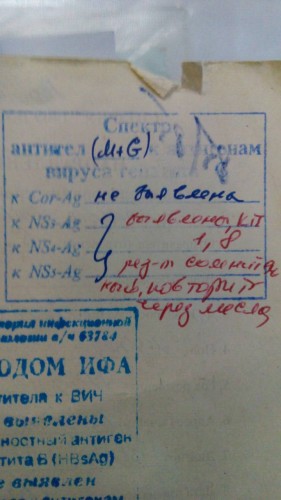 Спектр
антител (M+G) к антигенам
вируса гепатита
к Cor-Ag не выявлены
к NSs-Ag выявлены КП
к NSs-Ag 1,8
к NSs-Ag рез-т сомнитель
ный, повторить
через месяц
инфекционной
а/я 63784
ТОДОМ ИФА
титела к ВИЧ
выявлены
ностный антиген
тита В (HBsAg)
е выявлен